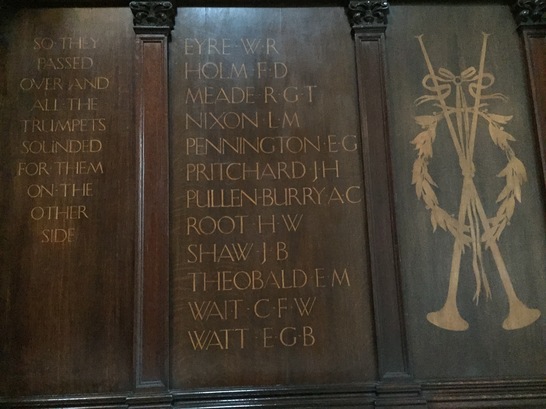 SO THEY
PASSED
OVER AND
ALL THE
TRUMPETS
SOUNDED
FOR THEM
ON THE
OTHER
SIDE
EYRE·W·R
HOLM·F·D
MEADE·R·G·T
NIXON·L·M
PENNINGTON·E·G
PRITCHARD·J·H
PULLEN-BURRY·A·C
ROOT·H·W
SHAW·J·B
THEOBALD·E·M
WAIT·C·F·W
WATT·E·G·B